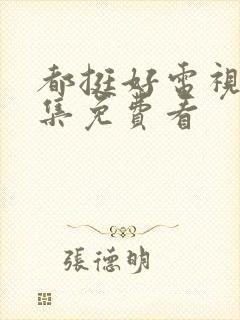 都挺好電視
集免費看
張德明